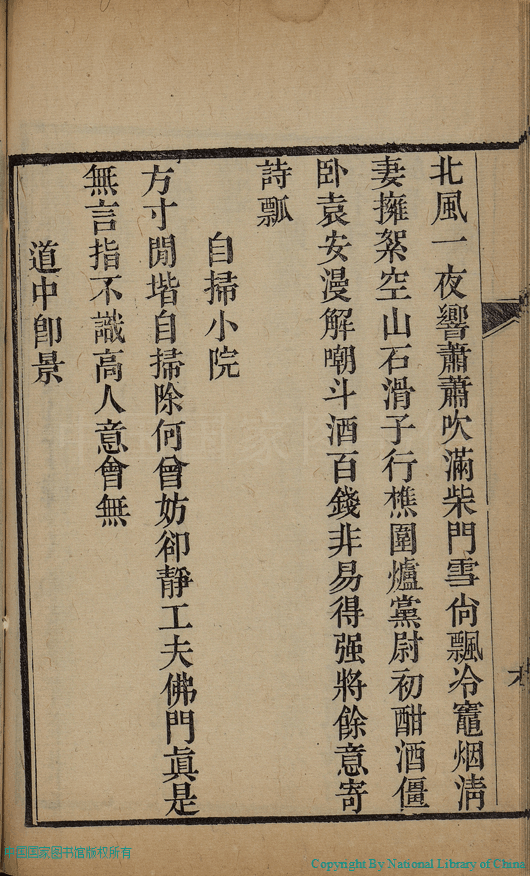 北風一夜響蕭蕭吹滿柴門雪尙飄冷竈烟淸
妻擁絮空山石滑子行樵圍爐黨尉初酣酒僵
卧袁安漫解嘲斗酒百錢非易得强將餘意寄
詩瓢
自掃小院
方寸閒堦自掃除何曾妨卻靜工夫佛門眞是
無言指不識高人意會無
道中卽景
中国国家图书馆版权所有
Copyright By National Library of China